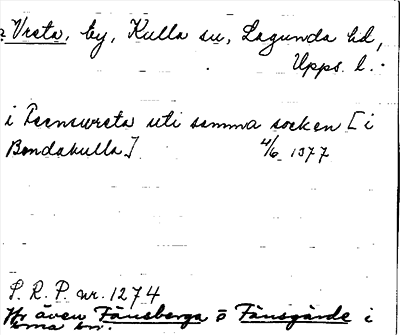 Vreta, by, Kulla sn, Lagunda hd,
Upps. l.
i Teensvreta uti samma socken [i
Bondakulla] 4/6 1377
S. R. P. nr. 1274
Hr även Fänsberga o Fänsgärde i
sma sn.